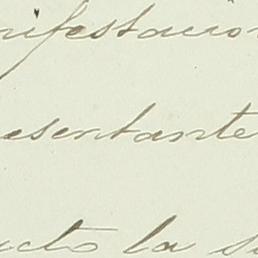 nifestacion
esentante
ucto la su